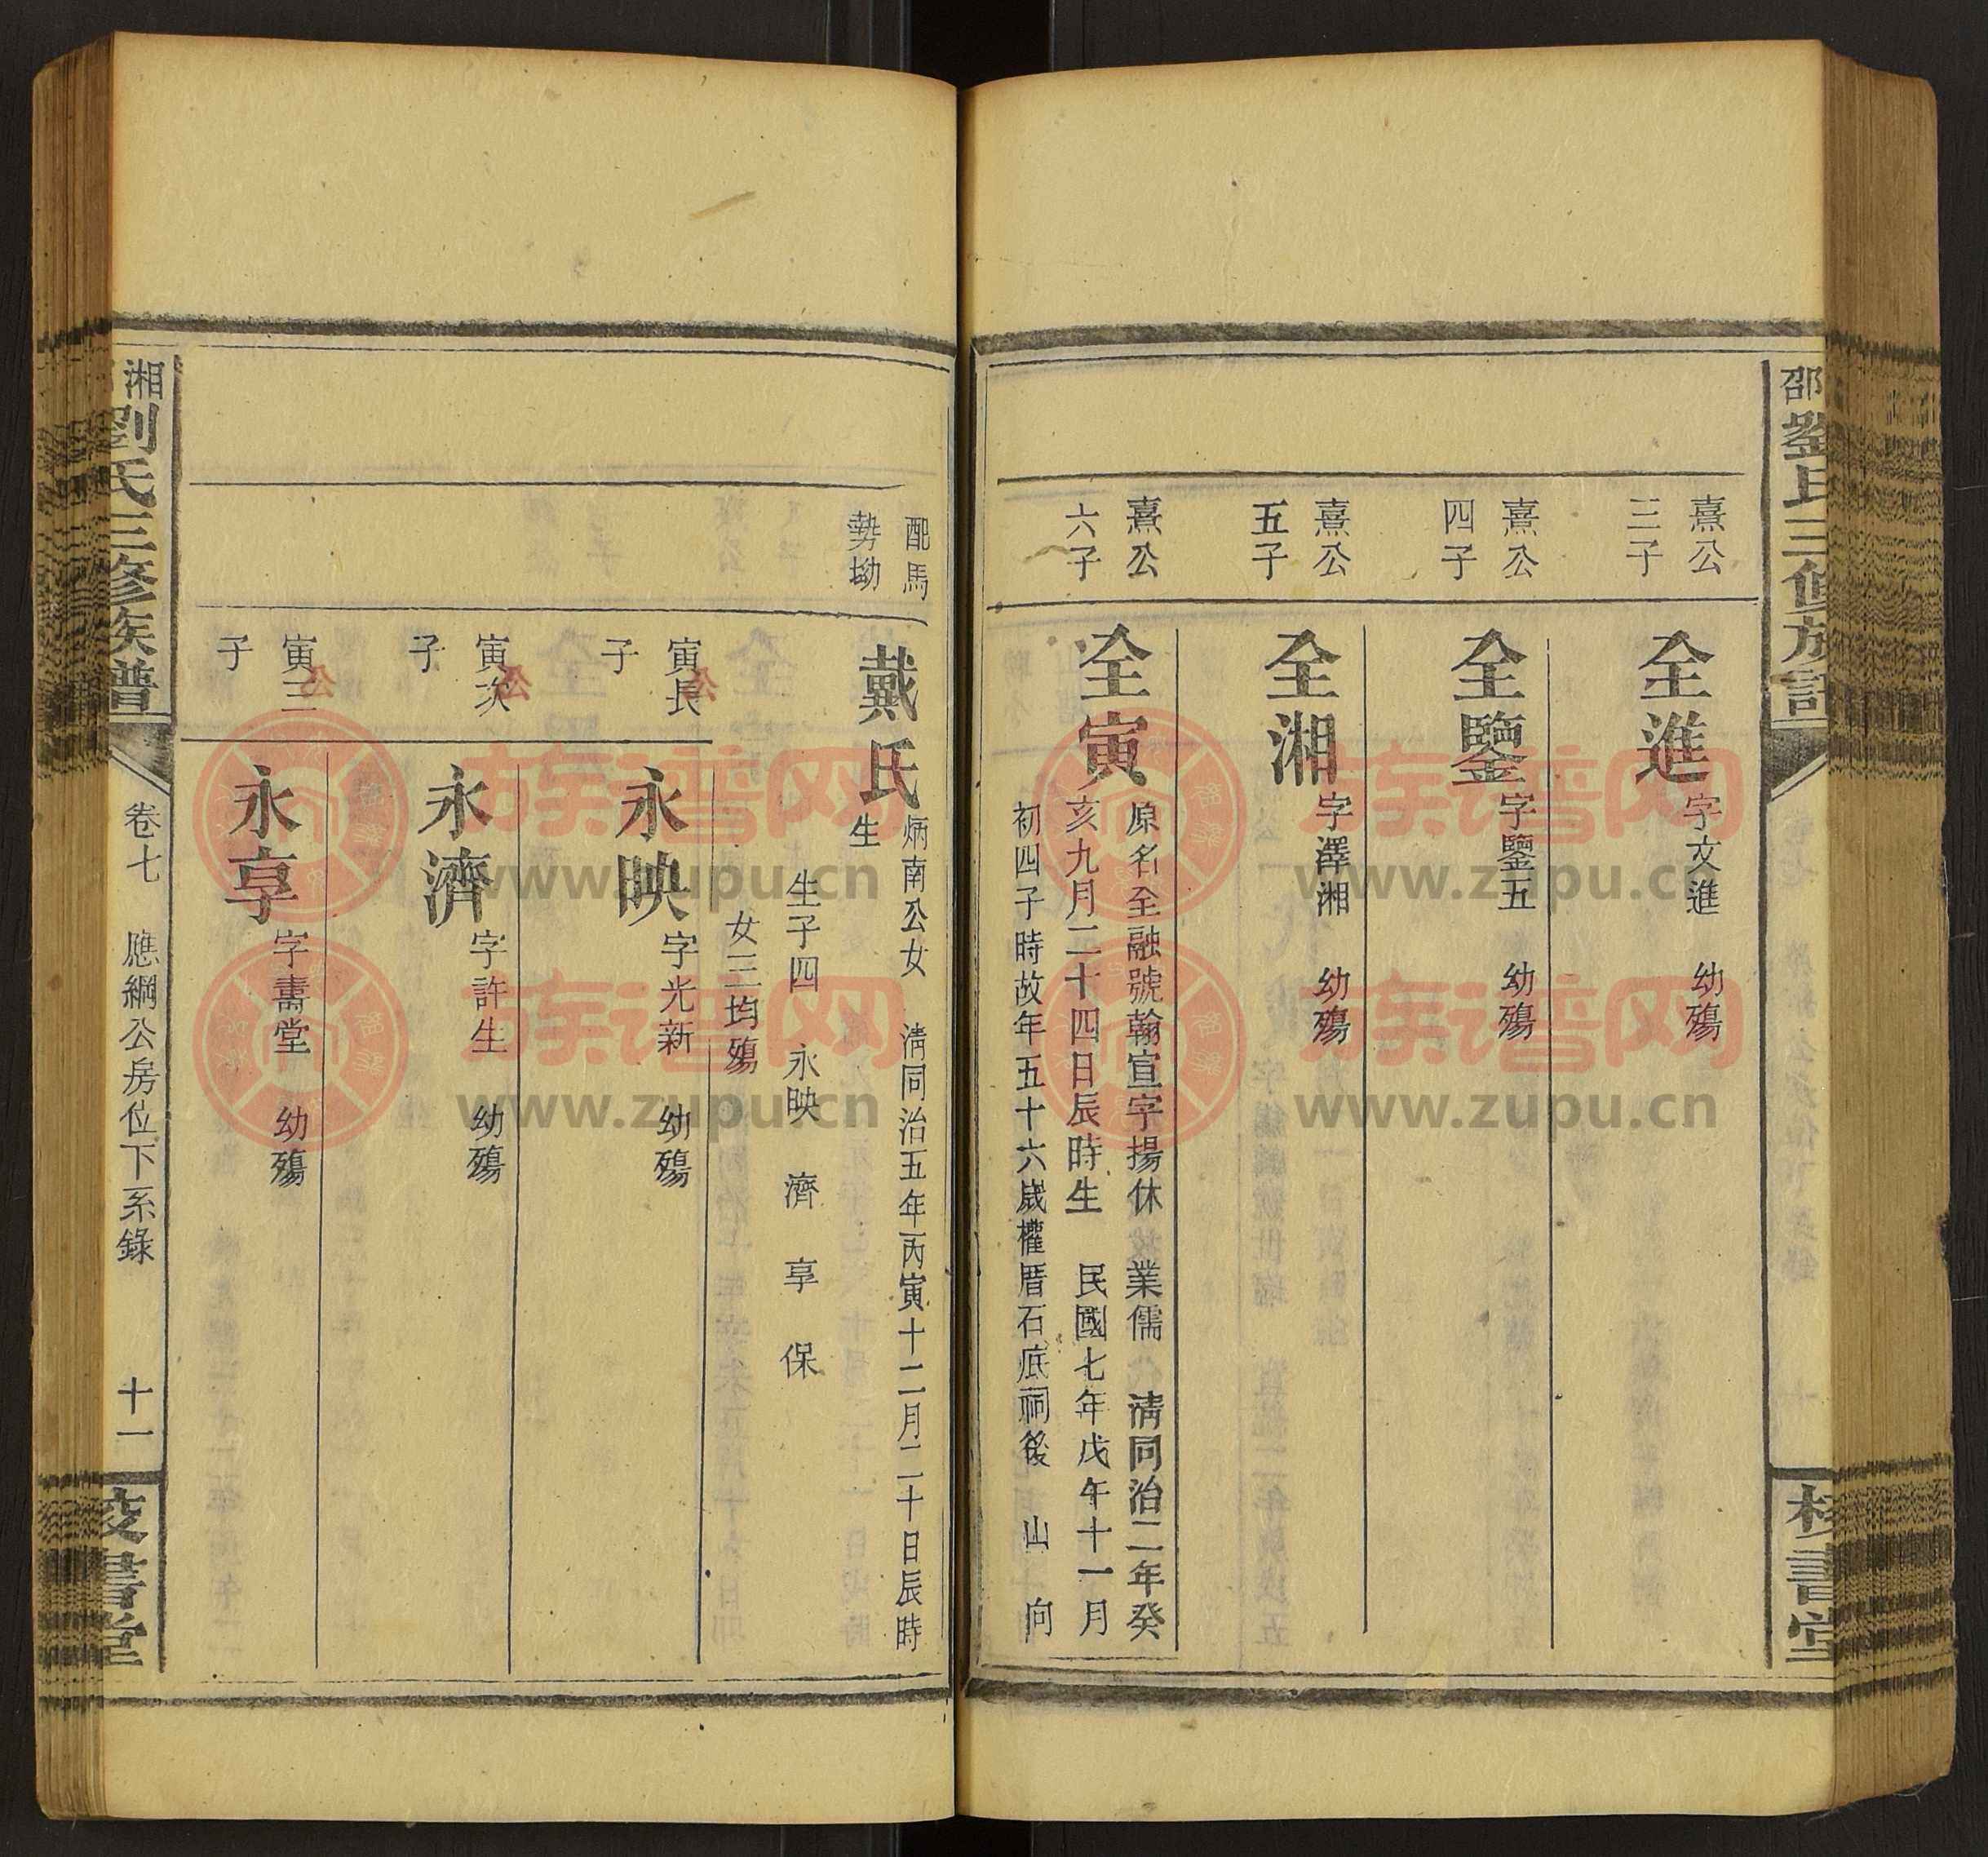 邵劉氏三修族譜
校書堂
熹公三子
全進
字文進 幼殤
熹公四子
全鑒
字鑒五 幼殤
熹公五子
全湘
字澤湘 幼殤
熹公六子
全寅
原名全融號翰宣字揚休 業儒 清同治二年癸
亥九月二十四日辰時生 民國七年戊午十一月
初四子時故年五十六歲權厝石底祠後 山 向
配馬勢坳
戴氏
炳南公女 清同治五年丙寅十二月二十日辰時
生
生子四 永映 濟 享 保
女三均殤
寅公長子
永映
字光新 幼殤
寅公次子
永濟
字許生 幼殤
寅公三子
永享
字壽堂 幼殤
湘劉氏三修族譜
卷七 應綱公房位下系錄 十一
校書堂
族譜网
www.zupu.cn
族譜网
www.zupu.cn
族譜网
www.zupu.cn
族譜网
www.zupu.cn